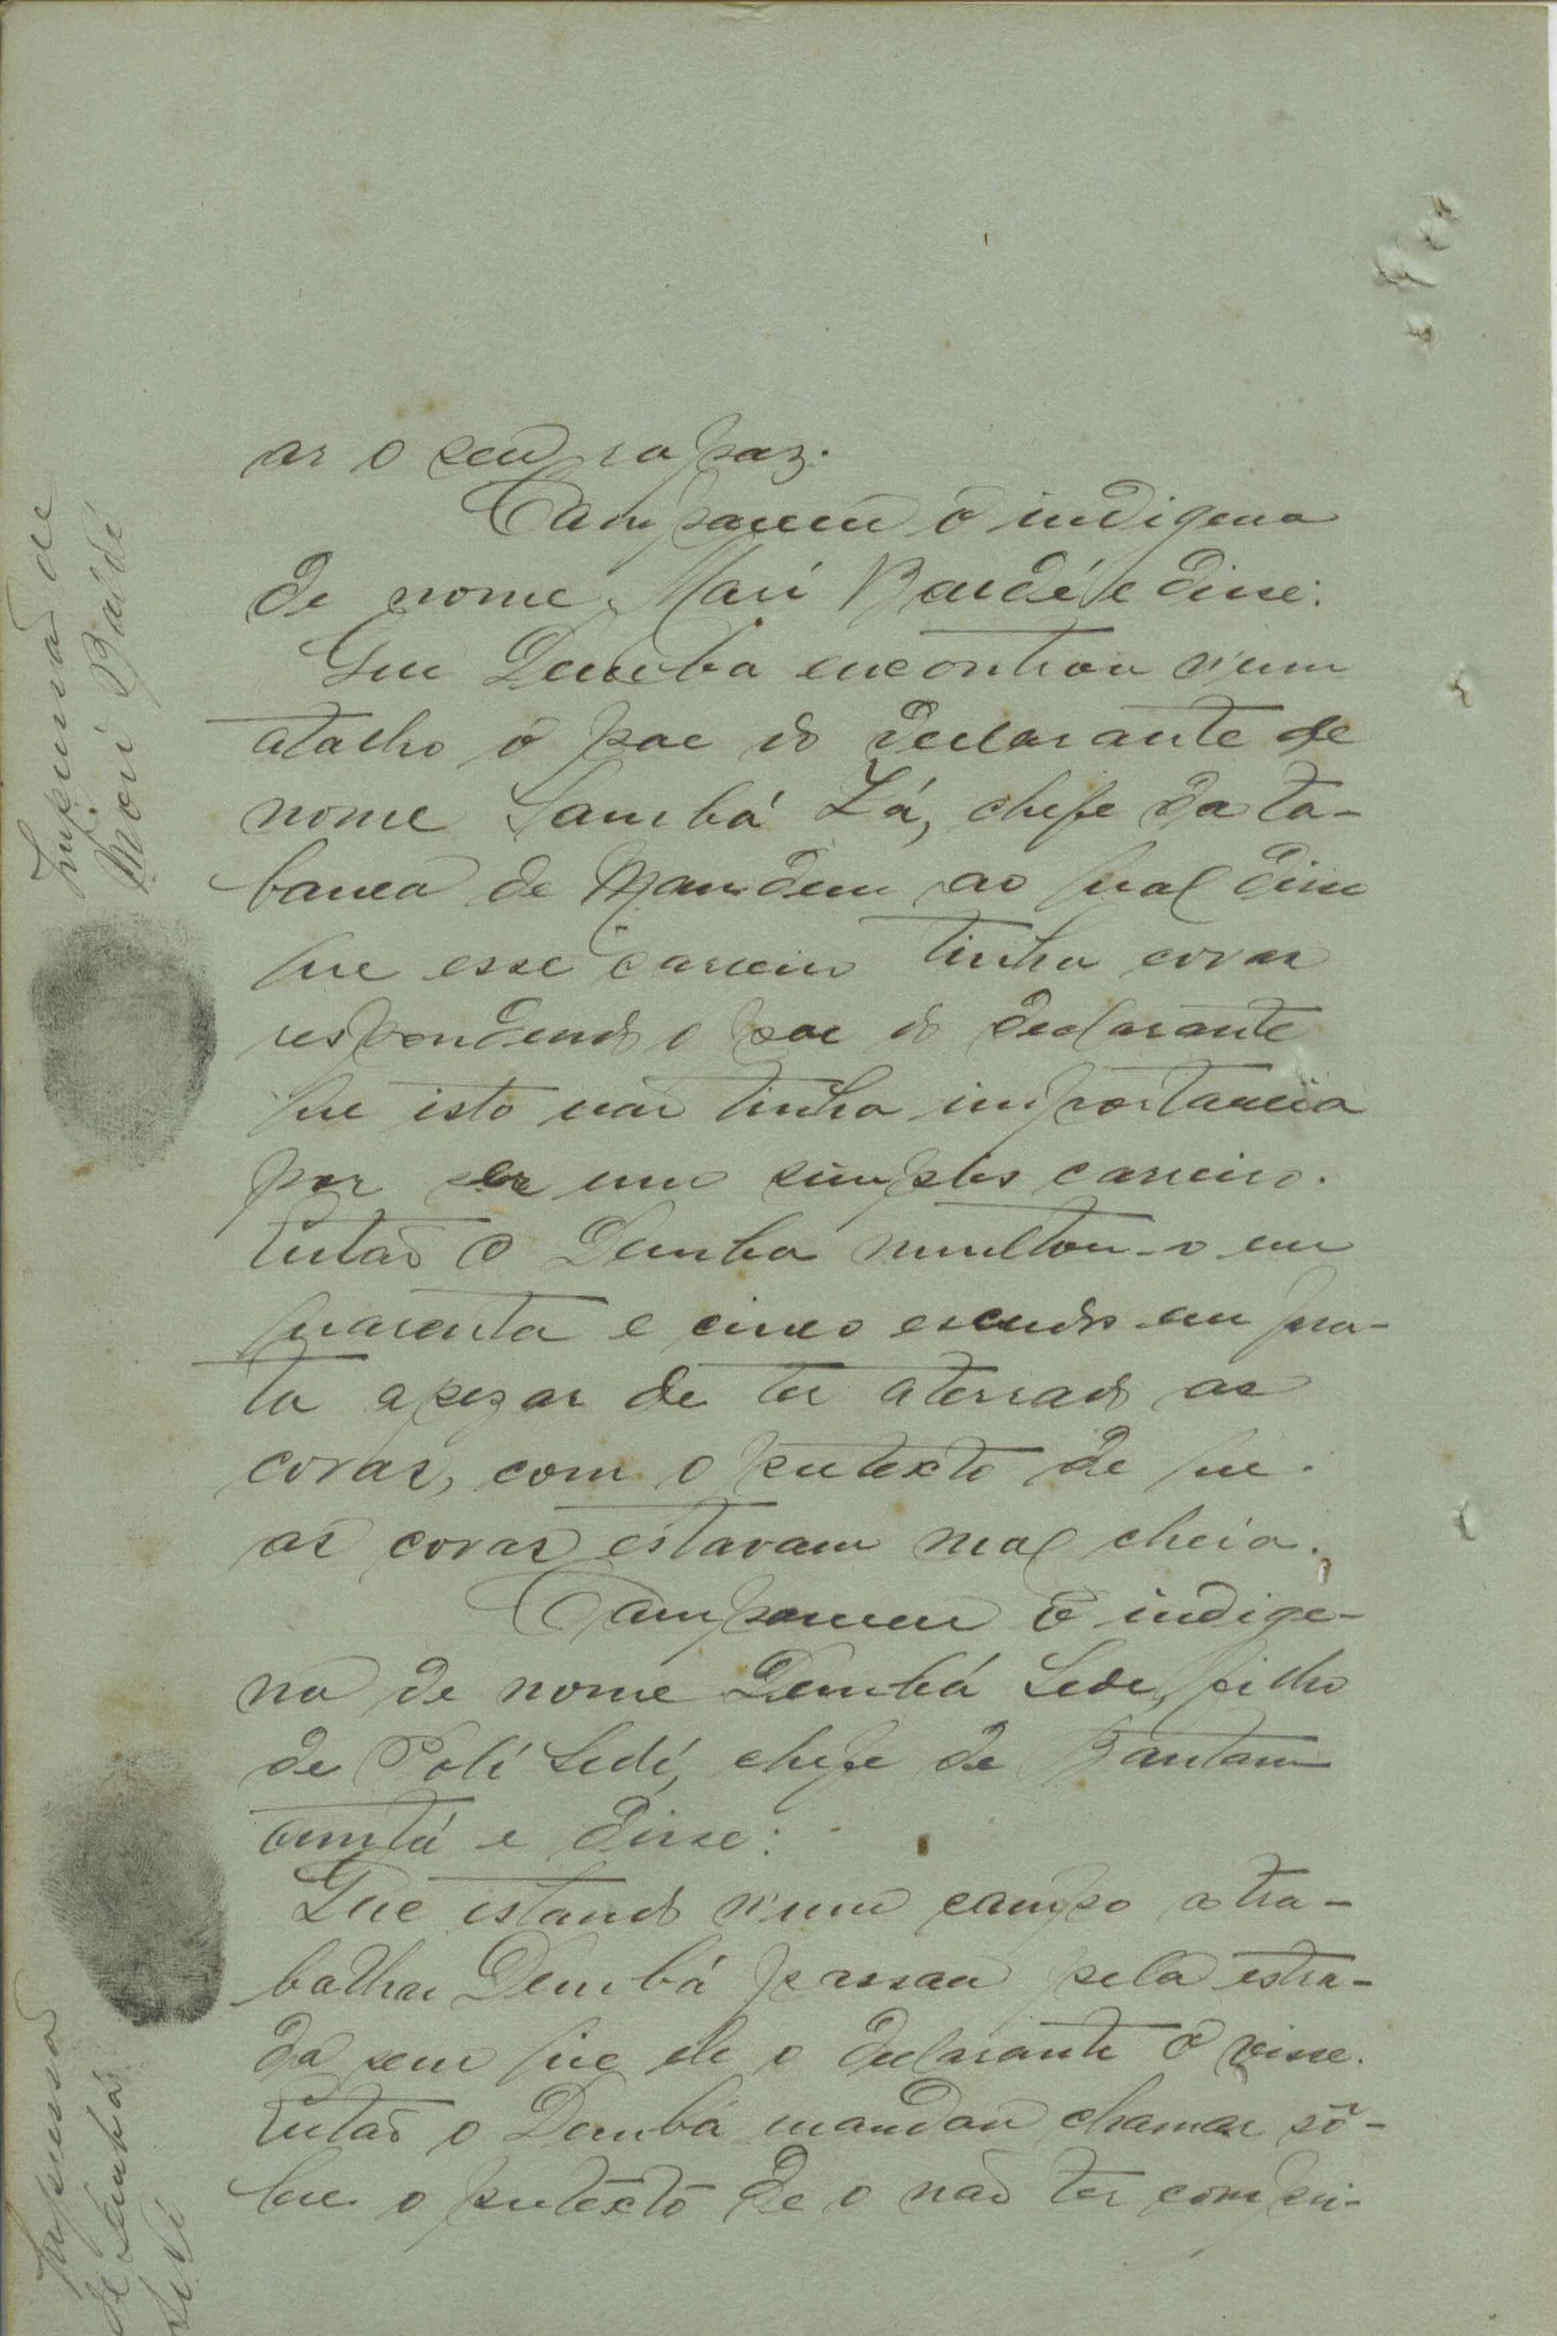 ar o seu rapaz.
Compareceu o indigena
de nome Mori Baldé e disse:
Que Demba encontrou n'um
atalho o pae do declarante de
nome Sambá Lá, chefe da ta-
banca de Mandem ao qual disse
que esse carreiro tinha covas
respondendo o pae do declarante
que isto não tinha importancia
por ser um simples carreiro.
Então o Demba multou-o em
quarenta e cinco escudos em pra-
ta apezar de ter aterrado as
covas, com o pretexto de que
as covas estavam mal cheia.
Compareceu o indige-
na de nome Dembá Sedi, filho
de Polí Sedí, chefe de Bantam
e disse:
Que estando n'um campo a tra-
balhar Dembá passou pela estra-
da sem que ele o declarante o visse.
Então o Dembá mandou chamar sô-
bre o pretexto de o não ter compri-
Impressão de
Mori Baldé
Impressão
de Dembá
Sidi